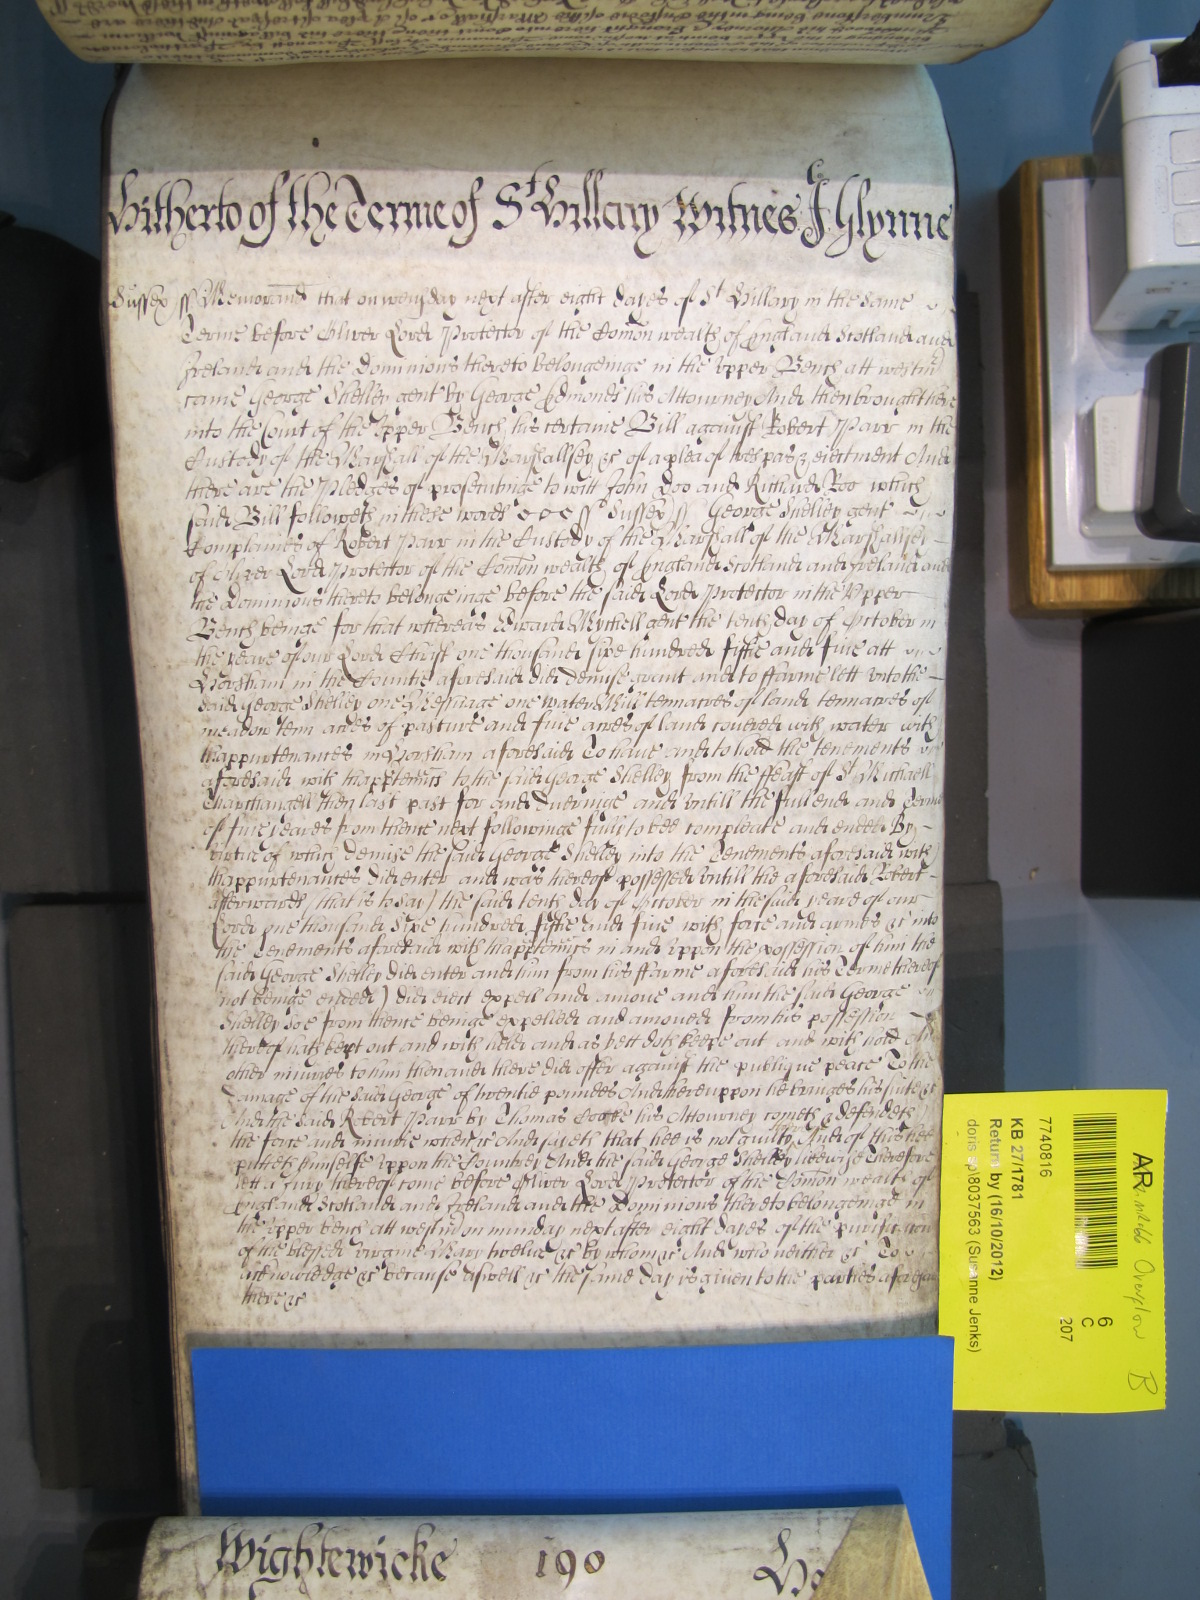 Hitherto of the Terme of St Hillary Witnes J Glynne
Sussex ss Memorand that on wensday next after eight dayes of St Hillary in the same
Terme before Oliver Lord Protector of the Comon wealth of England Scotland and
Ireland and the Dominions thereto belongeinge in the upper Bench att westmr
came George Shelley gent by George Edmonds his Attourney And then brought here
into the Court of the upper Bench his certaine Bill against Robert Parr in the
Custody of the Marshall of the Marshallsey &c of a plea of trespas & eiectment And
there are the Pledges of prosecutinge to witt John Doo and Richard Roo which
said Bill followeth in these words ss Sussex ss George Shelley gent
Complaines of Robert Parr in the Custody of the Marshall of the Marshallsey
of Oliver Lord Protector of the Comon wealth of England Scotland and Ireland and
the Dominions thereto belongeinge before the said Lord Protector in the Upper
Bench beinge for that whereas Edward Mychell gent the tenth day of October in
the yeare of our Lord Christ one thousand sixe hundred fiftie and five att
Horsham in the Countie aforesaid did demise graunt and to ffarme lett unto the
said George Shelley one Messuage one water Mill tenn acres of land tenn acres of
meadow tenn acres of pasture and five acres of land covered with water with
thappurtenances in Horsham aforesaid To have and to hold the tenements
aforesaid with thapptennts to the said George Shelley from the ffeast of St Michaell
Tharchangell then last past for and dureinge and untill the full end and Terme
of five yeares from thence next followinge fully to bee compleate and ended By
virtue of which demise the said George Shelley into the Tenements aforesaid with
thappurtenances did enter and was thereof possessed untill the aforesaid Robert
afterwards (that is to say) the said tenth day of October in the said yeare of our
Lord one thousand Sixe hundred fiftie and five with force and armes &c into
the Tenements aforesaid with thapptennts in and uppon the possession of him the
said George Shelley did enter and him from his ffarme aforesaid his Terme thereof
not beinge ended) did eiect expell and amove and him the said George
Shelley soe from thence beinge expelled and amoved from his possession
thereof hath kept out and with held and as yett doth keepe out and with hold And
other iniuries to him then and there did offer against the publique peace To the
damage of the said George of twentie poundes And thereuppon he bringes his suite &c
And the said Robert Parr by Thomas Cooke his Attourney cometh & defendeth
the force and iniurie when &c And sayeth that hee is not guilty And of this hee
putteth himselfe uppon the Countrey And the said George Shelley likewise Therefore
lett a Jury thereof come before Oliver Lord Protector of the Comon wealth of
England Scotland and Ireland and the Dominions thereto belongeinge in
the upper bench att westmr on munday next after eight dayes of the purificacon
of the blessed virgine Mary twelve &c by whom &c And who neither &c To
acknowledge &c because aswell &c the same day is given to the parties aforesaid
there &c
Wightewicke 190
AR
7740816
KB 27/1781
Return by (16/10/2012)
doris sp\8037563 (Susanne Jenks)
6
C
207
B